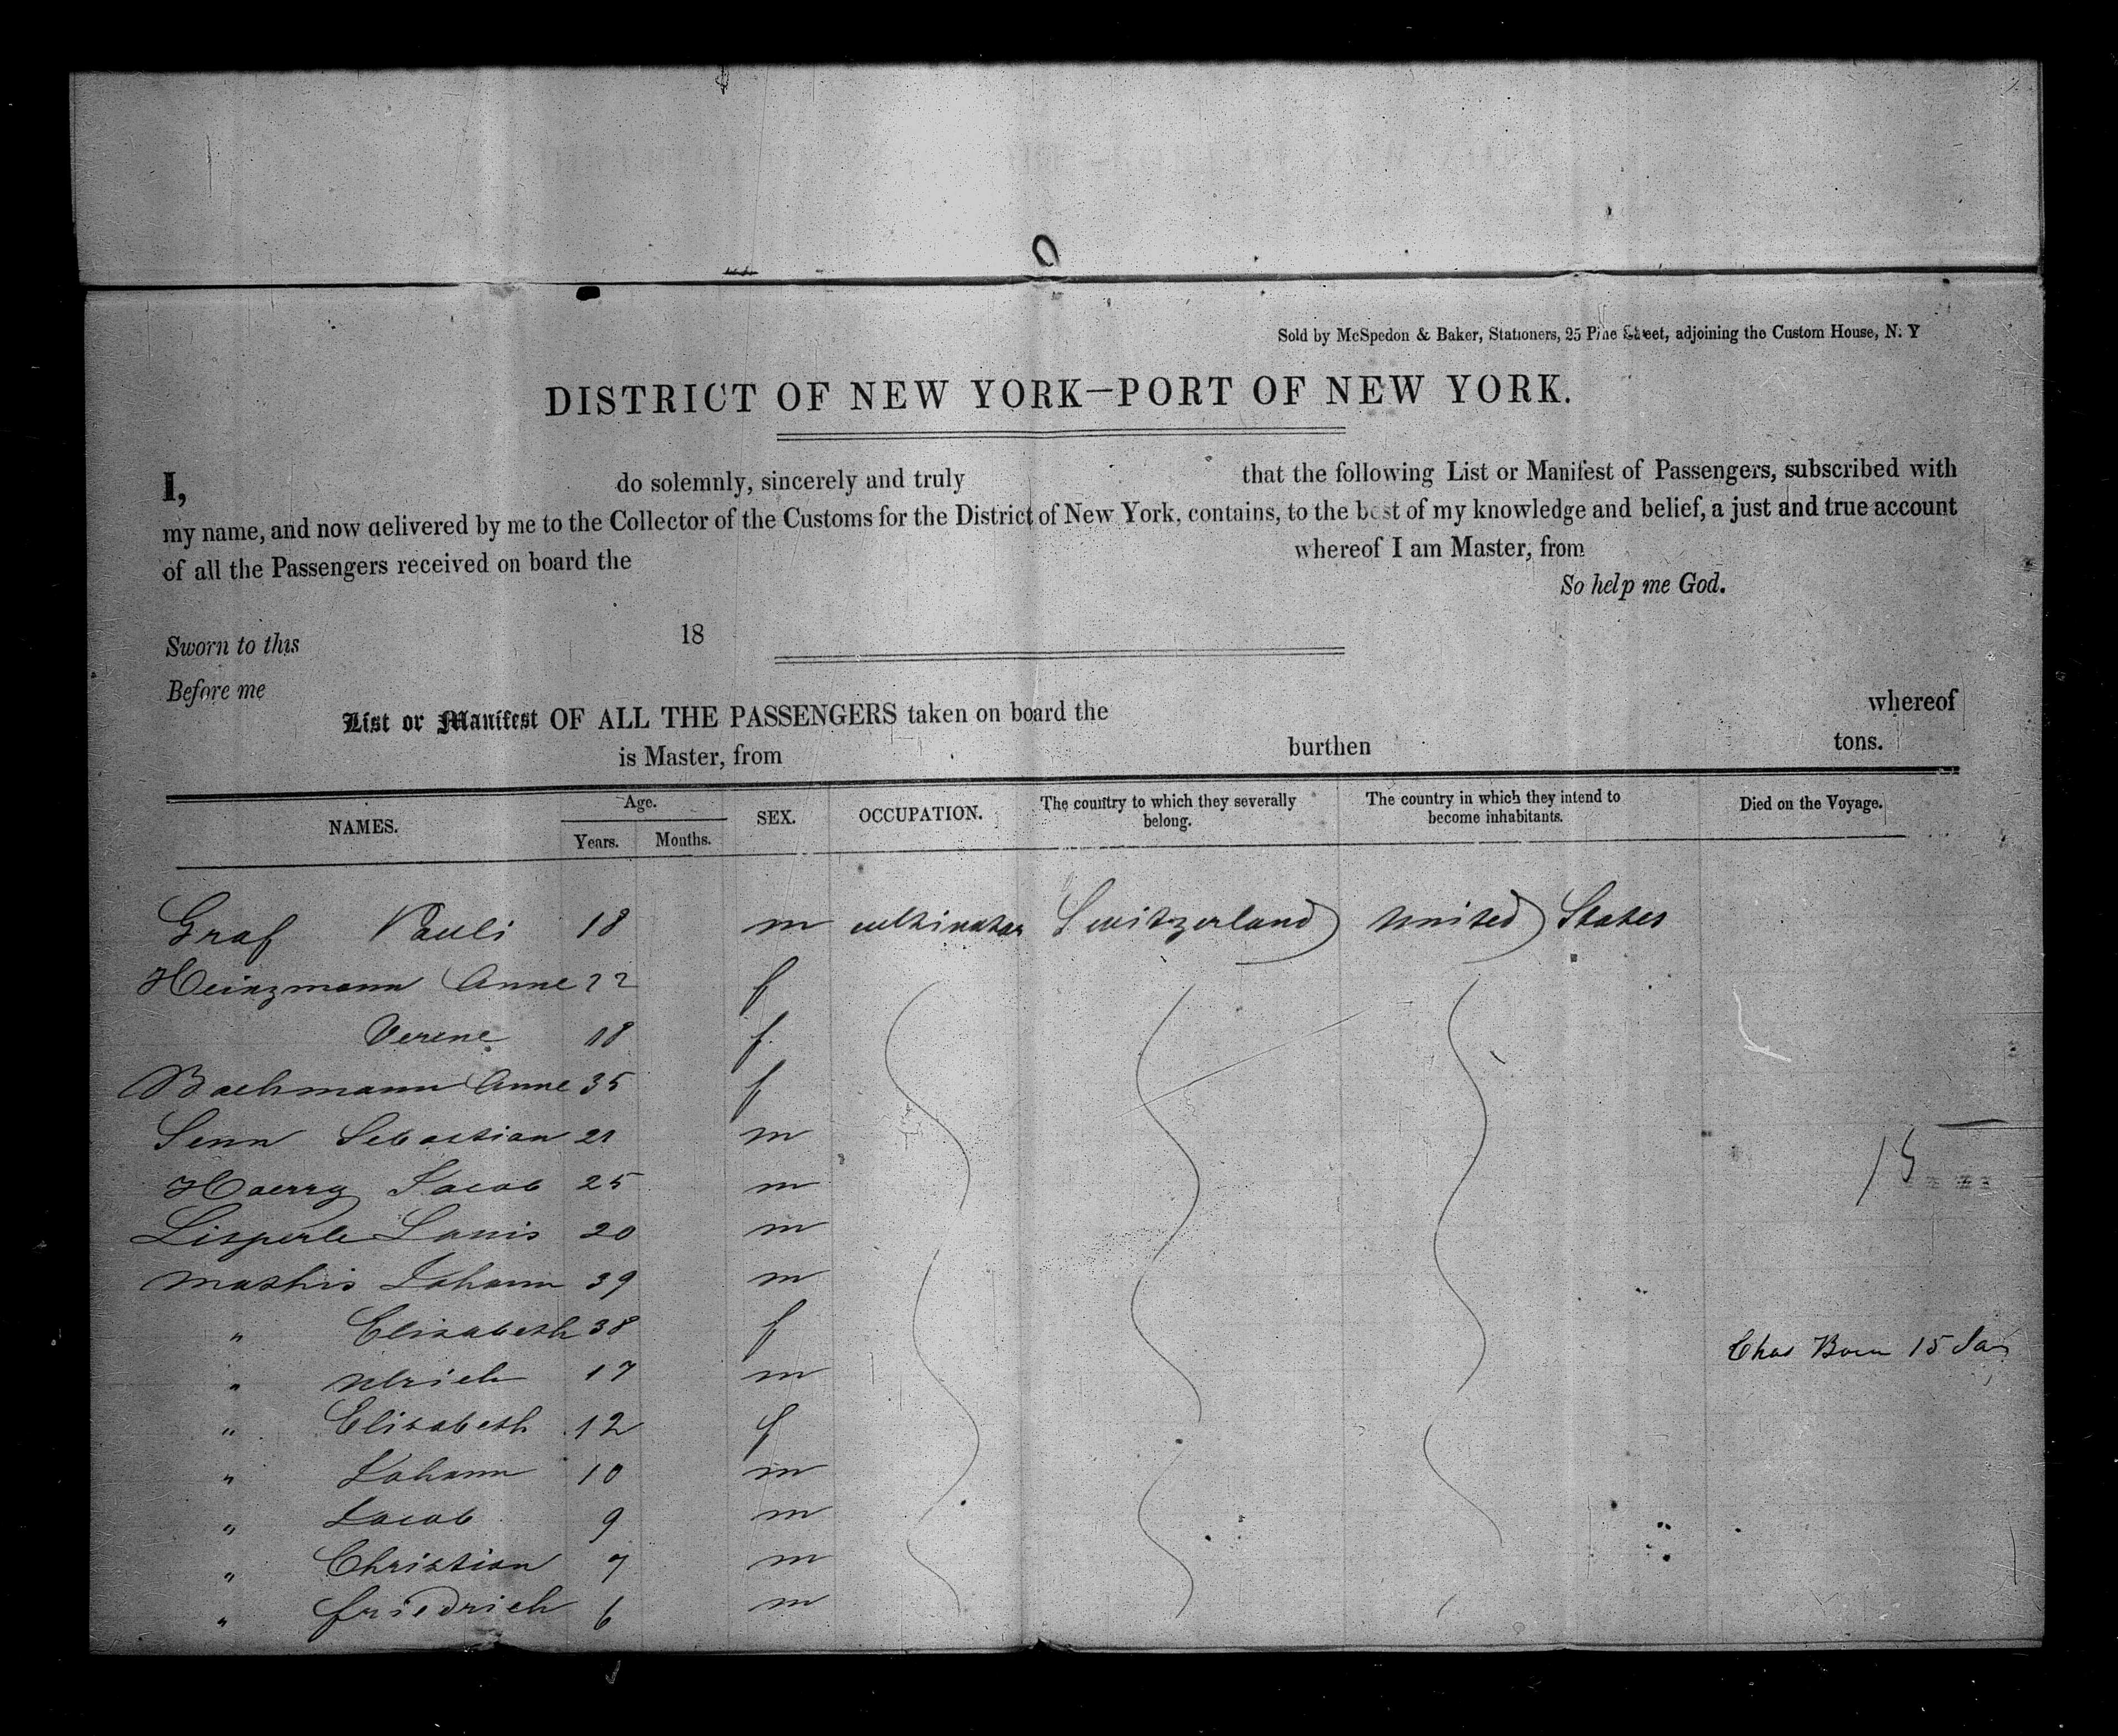 O
Sold by McSpedon & Baker, Stationers, 25 Pine Street, adjoining the Custom House, N. Y
DISTRICT OF NEW YORK—PORT OF NEW YORK.
I, do solemnly, sincerely and truly that the following List or Manifest of Passengers, subscribed with
my name, and now delivered by me to the Collector of the Customs for the District of New York, contains, to the best of my knowledge and belief, a just and true account
of all the Passengers received on board the whereof I am Master, from
So help me God.
Sworn to this 18
Before me
List or Manifest OF ALL THE PASSENGERS taken on board the whereof
is Master, from burthen tons.
NAMES. Age. Years. Months. SEX. OCCUPATION. The country to which they severally belong. The country in which they intend to become inhabitants. Died on the Voyage.
Graf Pauli 18 m cultivator Switzerland United States
Heinzmann Anne 22 f
Verene 18 f
Bachmann Anne 35 f
Senn Sebastian 21 m
Haerry Jacob 25 m
Lisperle Louis 20 m
Mathis Johann 39 m
" Elisabeth 38 f
" Ulrich 17 m
" Elisabeth 12 f
" Johann 10 m
" Jacob 9 m
" Christian 7 m
" Friedrich 6 m
15
Chas Born 15 Jan